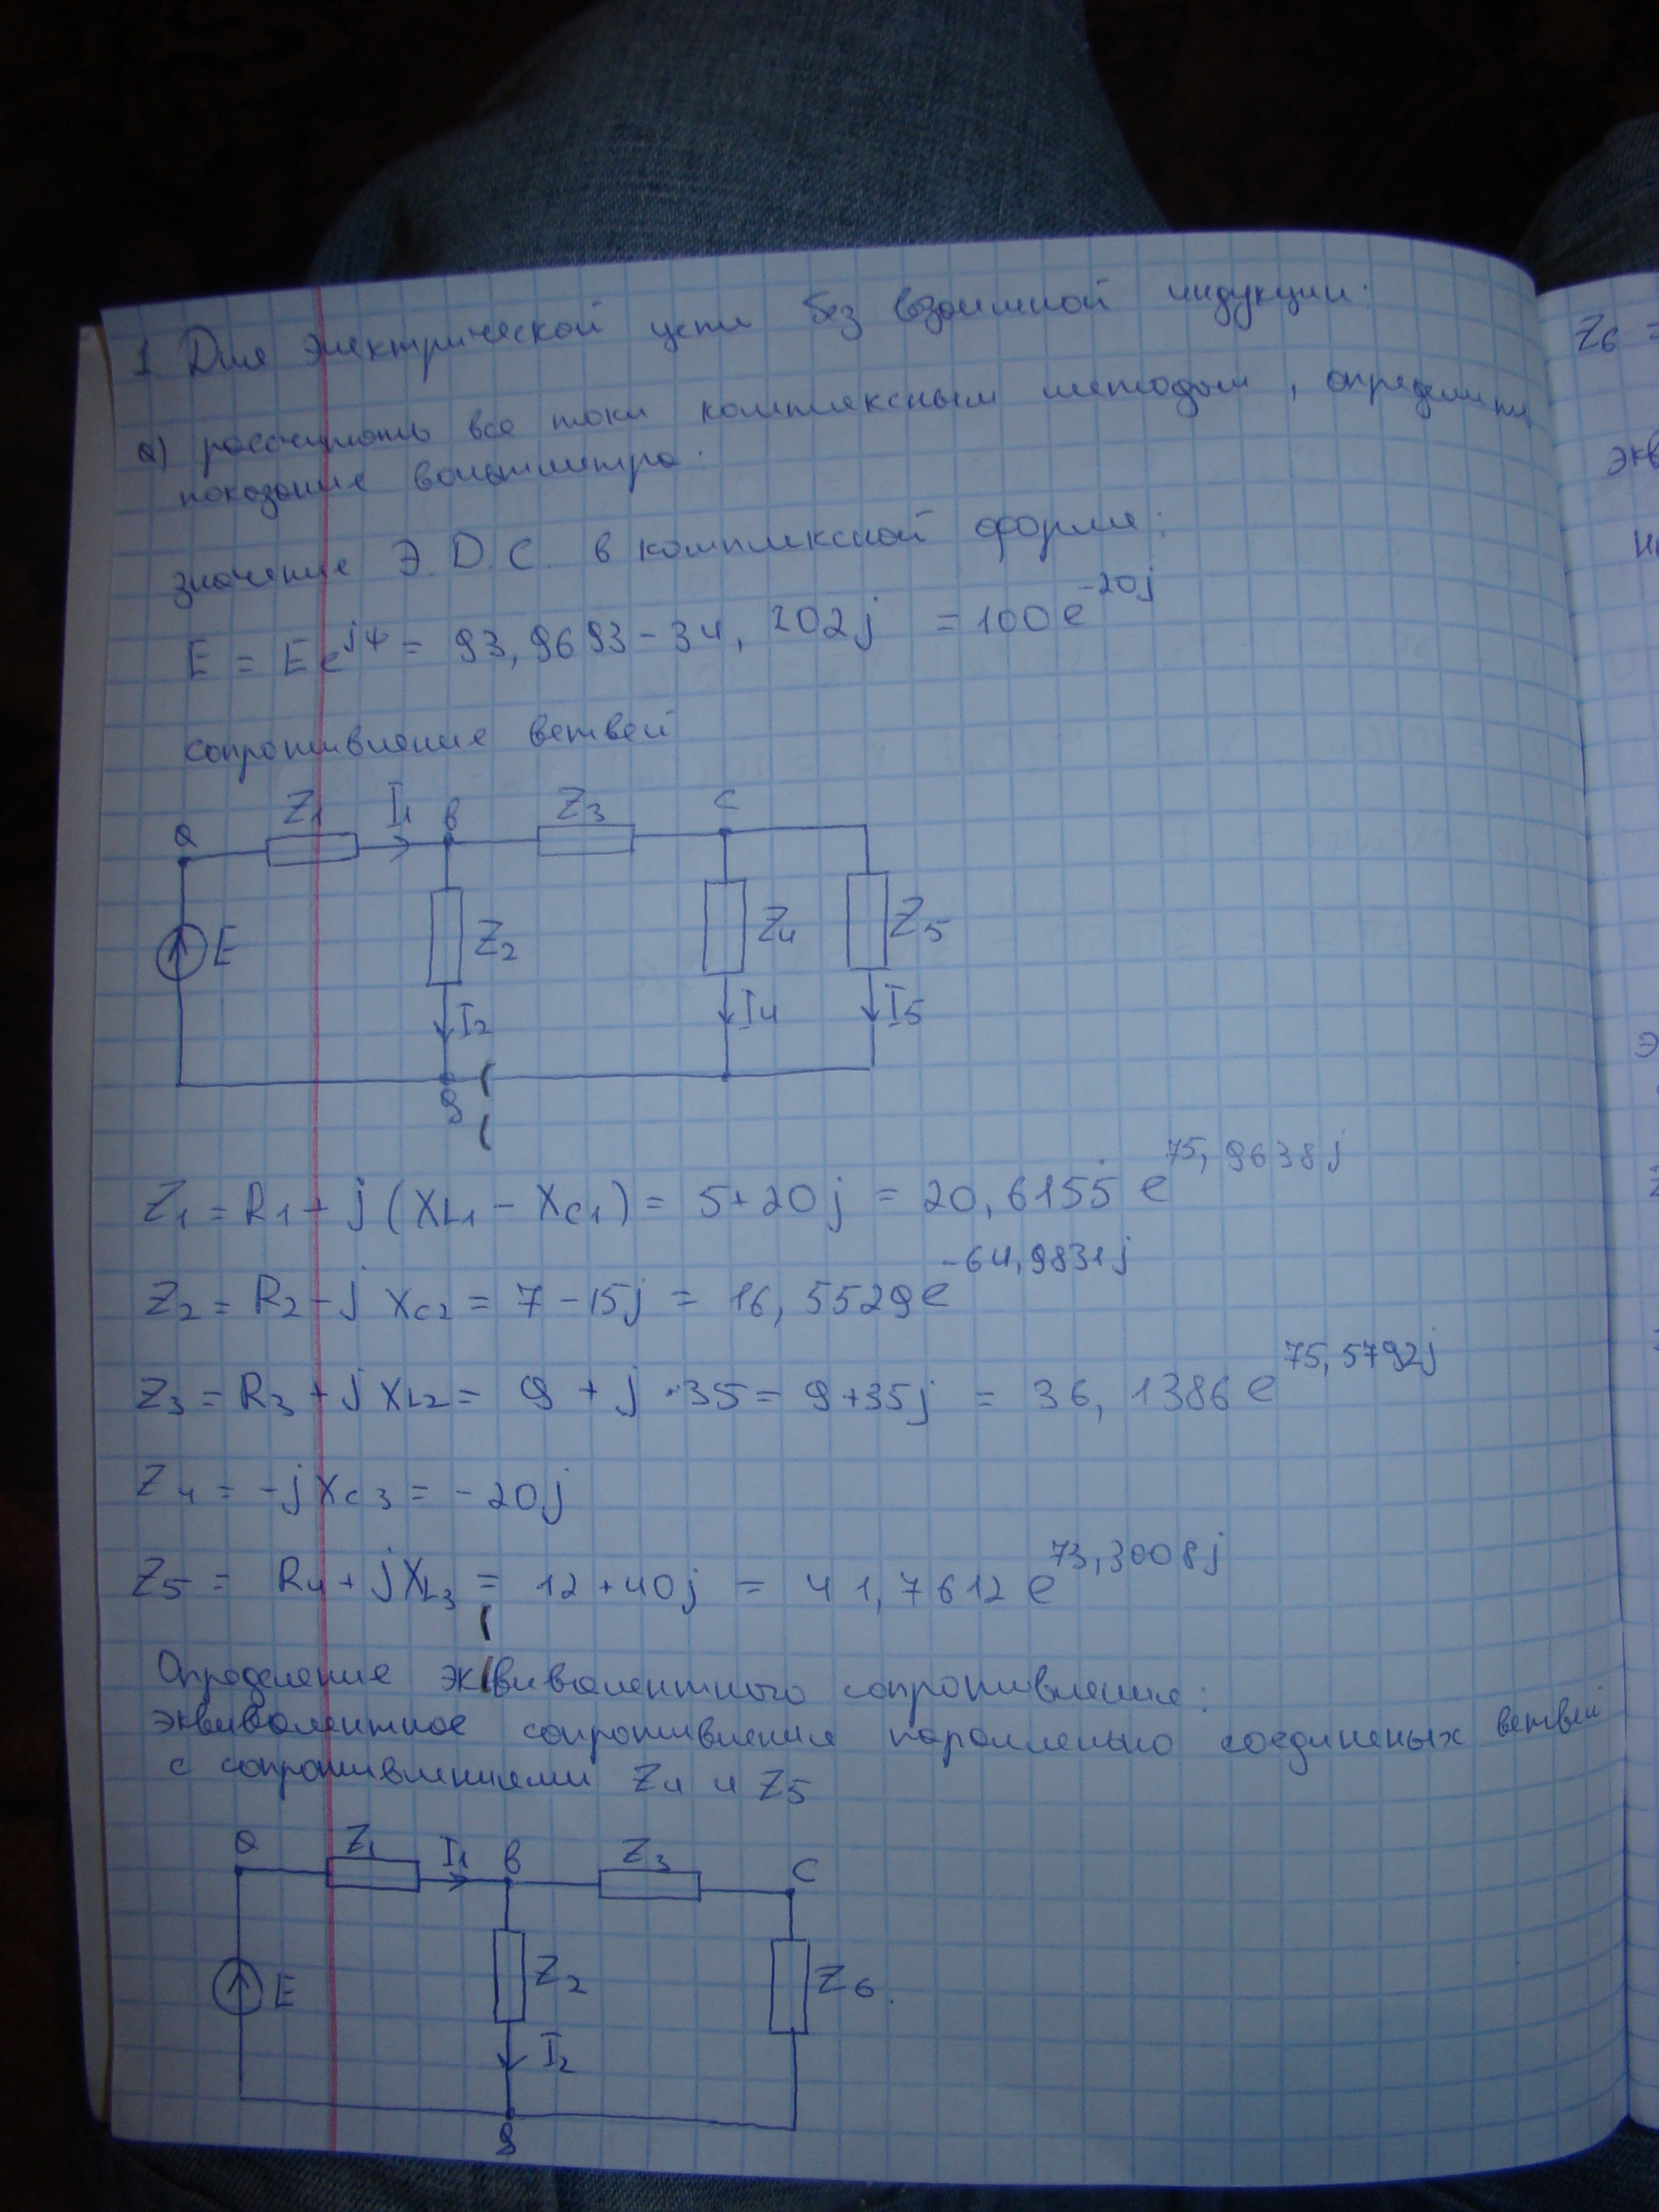 1 Для электрической цепи без взаимной индукции:
а) рассчитать все токи комплексным методом, определить
показание вольтметра.
значение Э.Д.С. в комплексной форме:
E = Ee^jψ = 93,9693 - 34,202j = 100e^-20j
сопротивление ветвей
a Z1 I1 b Z3 c
E Z2 Z4 Z5
I2 I4 I5
g
Z1 = R1 + j(XL1 - XC1) = 5+20j = 20,6155e^75,9638j
Z2 = R2 - jXC2 = 7 - 15j = 16,5529e^-64,9831j
Z3 = R3 + jXL2 = 9 + j·35 = 9+35j = 36,1386e^75,5792j
Z4 = -jXC3 = -20j
Z5 = R4 + jXL3 = 12+40j = 41,7612e^73,3008j
Определение эквивалентного сопротивления:
эквивалентное сопротивление параллельно соединеных ветвей
с сопротивлениями Z4 и Z5
a Z1 I1 b Z3 c
E Z2 Z6.
I2
g
Z6 =
экв